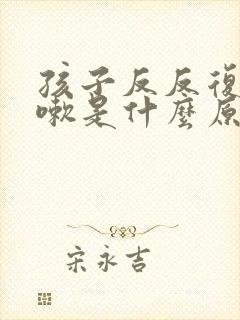 孩子反反復
嗽是什麼原
宋永吉